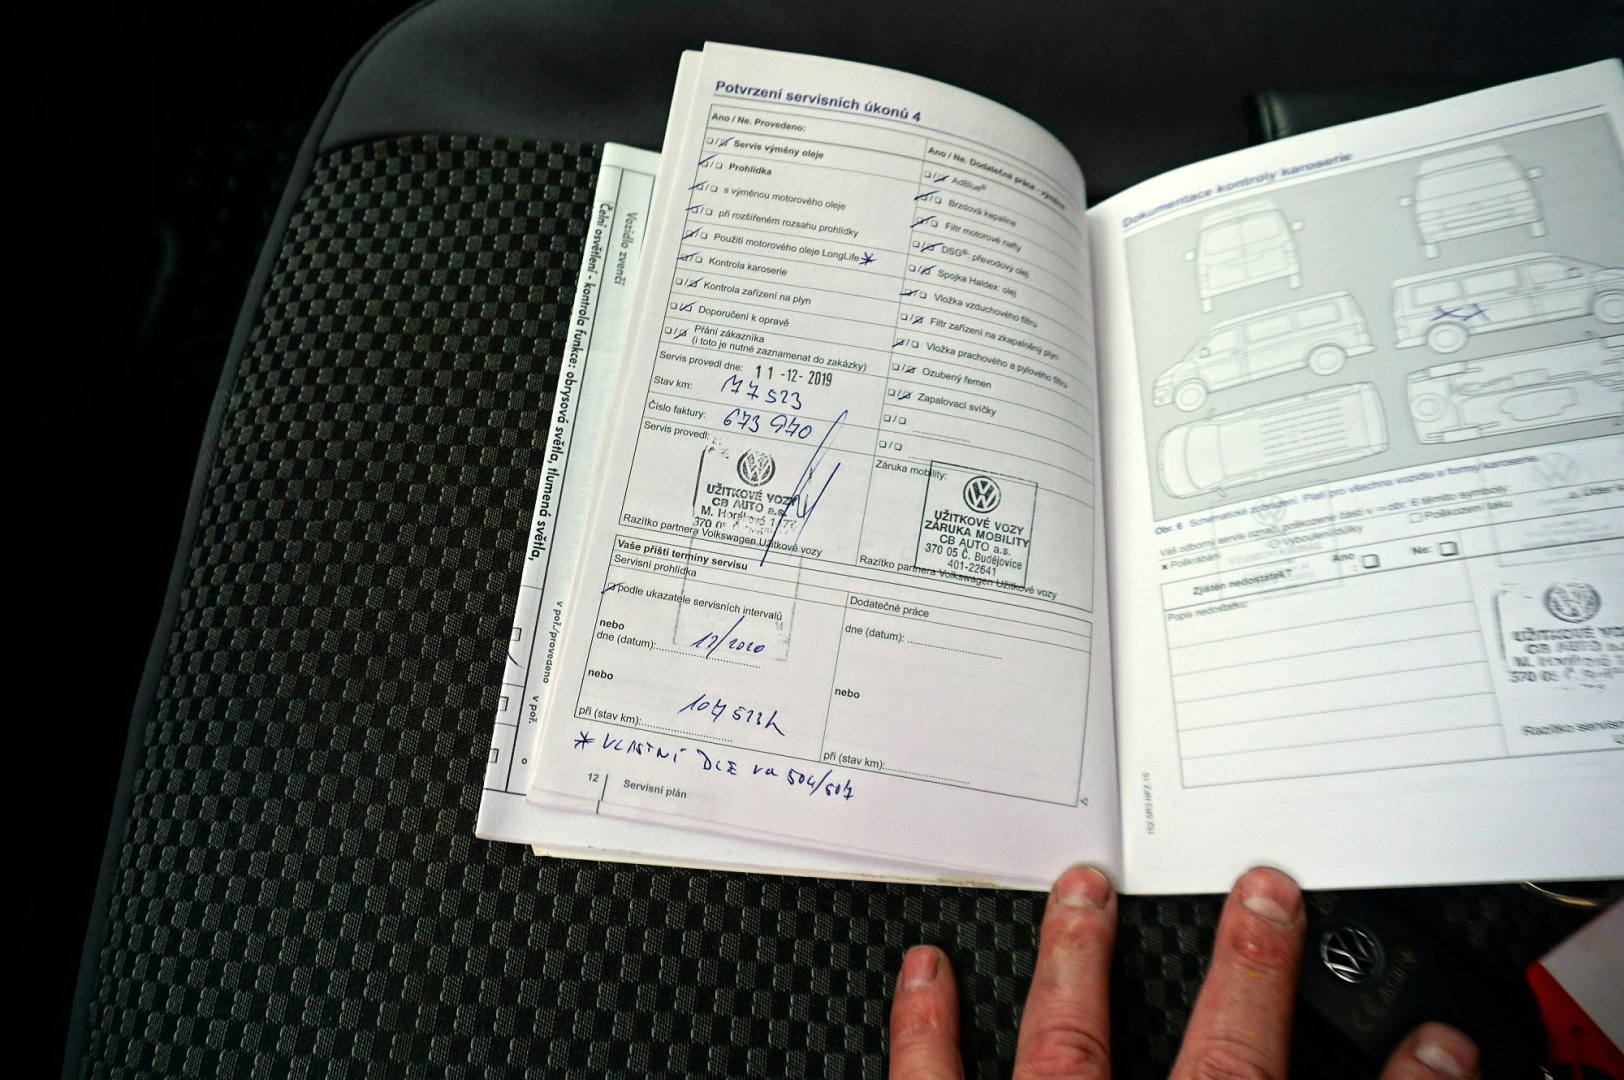 Potvrzení servisních úkonů 4
Ano / Ne. Provedeno:
❏/❏ Servis výměny oleje
❏/❏ Prohlídka
❏/❏ s výměnou motorového oleje
❏/❏ při rozšířeném rozsahu prohlídky
❏/❏ Použití motorového oleje LongLife *
❏/❏ Kontrola karoserie
❏/❏ Kontrola zařízení na plyn
❏/❏ Doporučení k opravě
❏/❏ Přání zákazníka
(i toto je nutné zaznamenat do zakázky)
Servis provedl dne: 11-12-2019
Stav km: 77 523
Číslo faktury: 673 970
Servis provedl:
UŽITKOVÉ VOZY
CB AUTO a.s.
M. Horákové
370 05
Razítko partnera Volkswagen Užitkové vozy
Ano / Ne. Dodatečné práce - výměna
❏/❏ AdBlue®
❏/❏ Brzdová kapalina
❏/❏ Filtr motorové nafty
❏/❏ DSG®: převodový olej
❏/❏ Spojka Haldex: olej
❏/❏ Vložka vzduchového filtru
❏/❏ Filtr zařízení na zkapalněný plyn
❏/❏ Vložka prachového a pylového filtru
❏/❏ Ozubený řemen
❏/❏ Zapalovací svíčky
❏/❏
❏/❏
Záruka mobility:
UŽITKOVÉ VOZY
ZÁRUKA MOBILITY
CB AUTO a.s.
370 05 Č. Budějovice
401-22641
Razítko partnera Volkswagen Užitkové vozy
Vaše příští termíny servisu
Servisní prohlídka
❏ podle ukazatele servisních intervalů
nebo
dne (datum): 12/2020
nebo
při (stav km): 107 523
Dodatečné práce
dne (datum):
nebo
při (stav km):
* VLASTNÍ DLE VW 504/507
12 Servisní plán
Vozidlo zvenčí
Čelní osvětlení - kontrola funkce: obrysová světla, tlumená světla,
v poř./provedeno
v poř.
Dokumentace kontroly karoserie
Obr. 6 Schematické zobrazení. Platí pro všechna vozidla a formy karoserie.
Váš odborný servis označí poškozené části v ⇒ obr. 6 těmito symboly:
× Poškrábání
○ Vyboulení/důlky
□ Poškození laku
Zjištěn nedostatek?
Ano :
Ne:
Popis nedostatku:
UŽITKOVÉ
CB AUTO
M. Horákové
370 05 Č.
Razítko